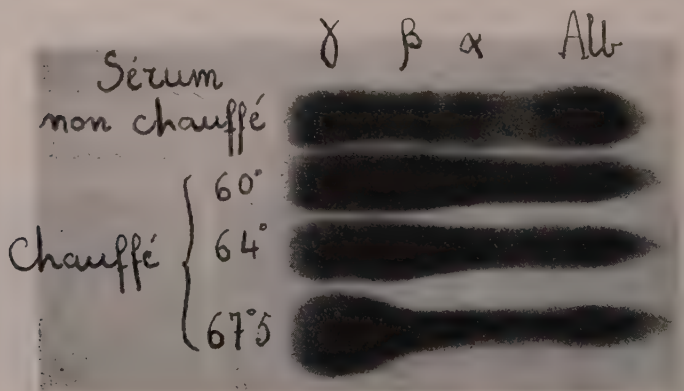 γ β α Alb
Sérum
non chauffé
60°
Chauffé { 64°
67°5